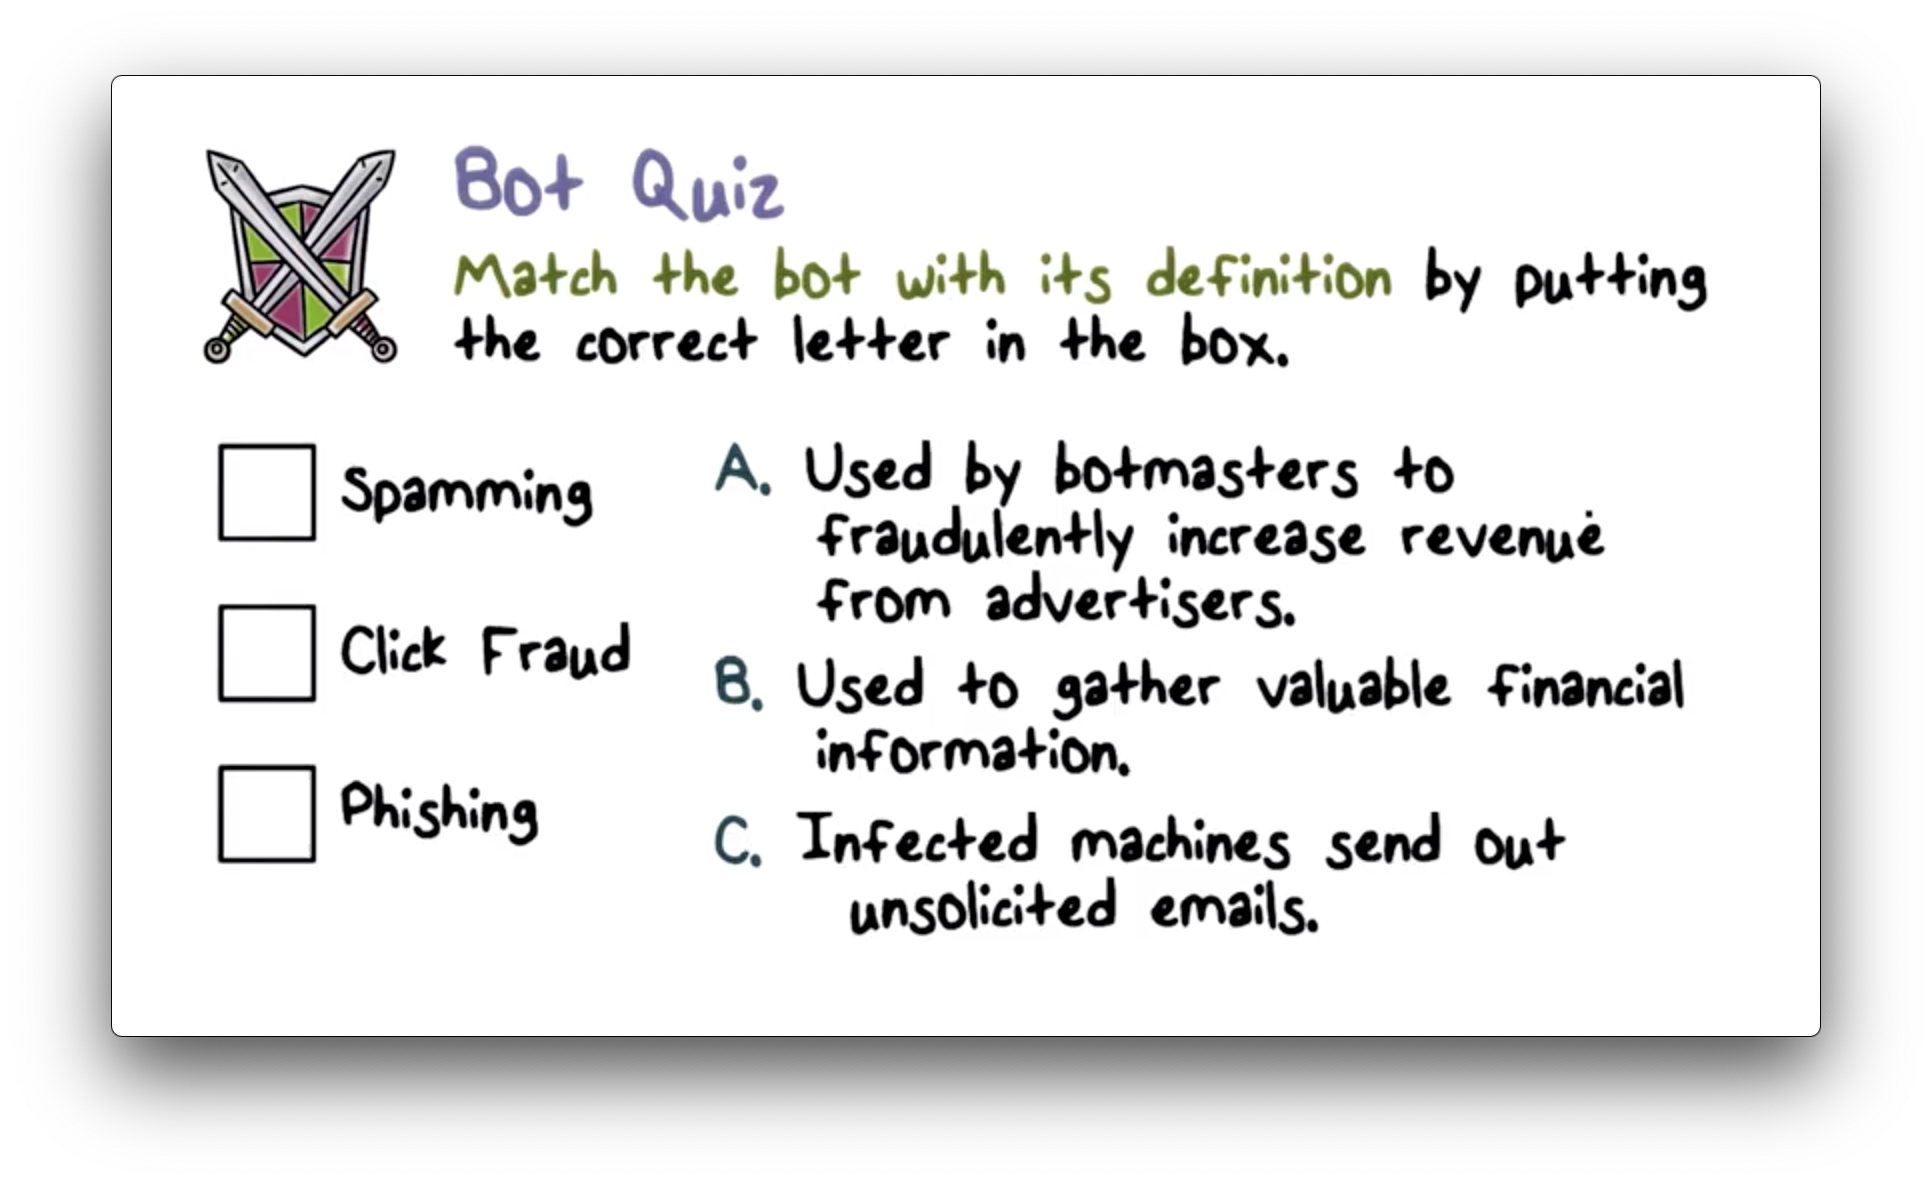 Bot Quiz
Match the bot with its definition by putting
the correct letter in the box.
Spamming
Click Fraud
Phishing
A. Used by botmasters to
fraudulently increase revenue
from advertisers.
B. Used to gather valuable financial
information.
C. Infected machines send out
unsolicited emails.